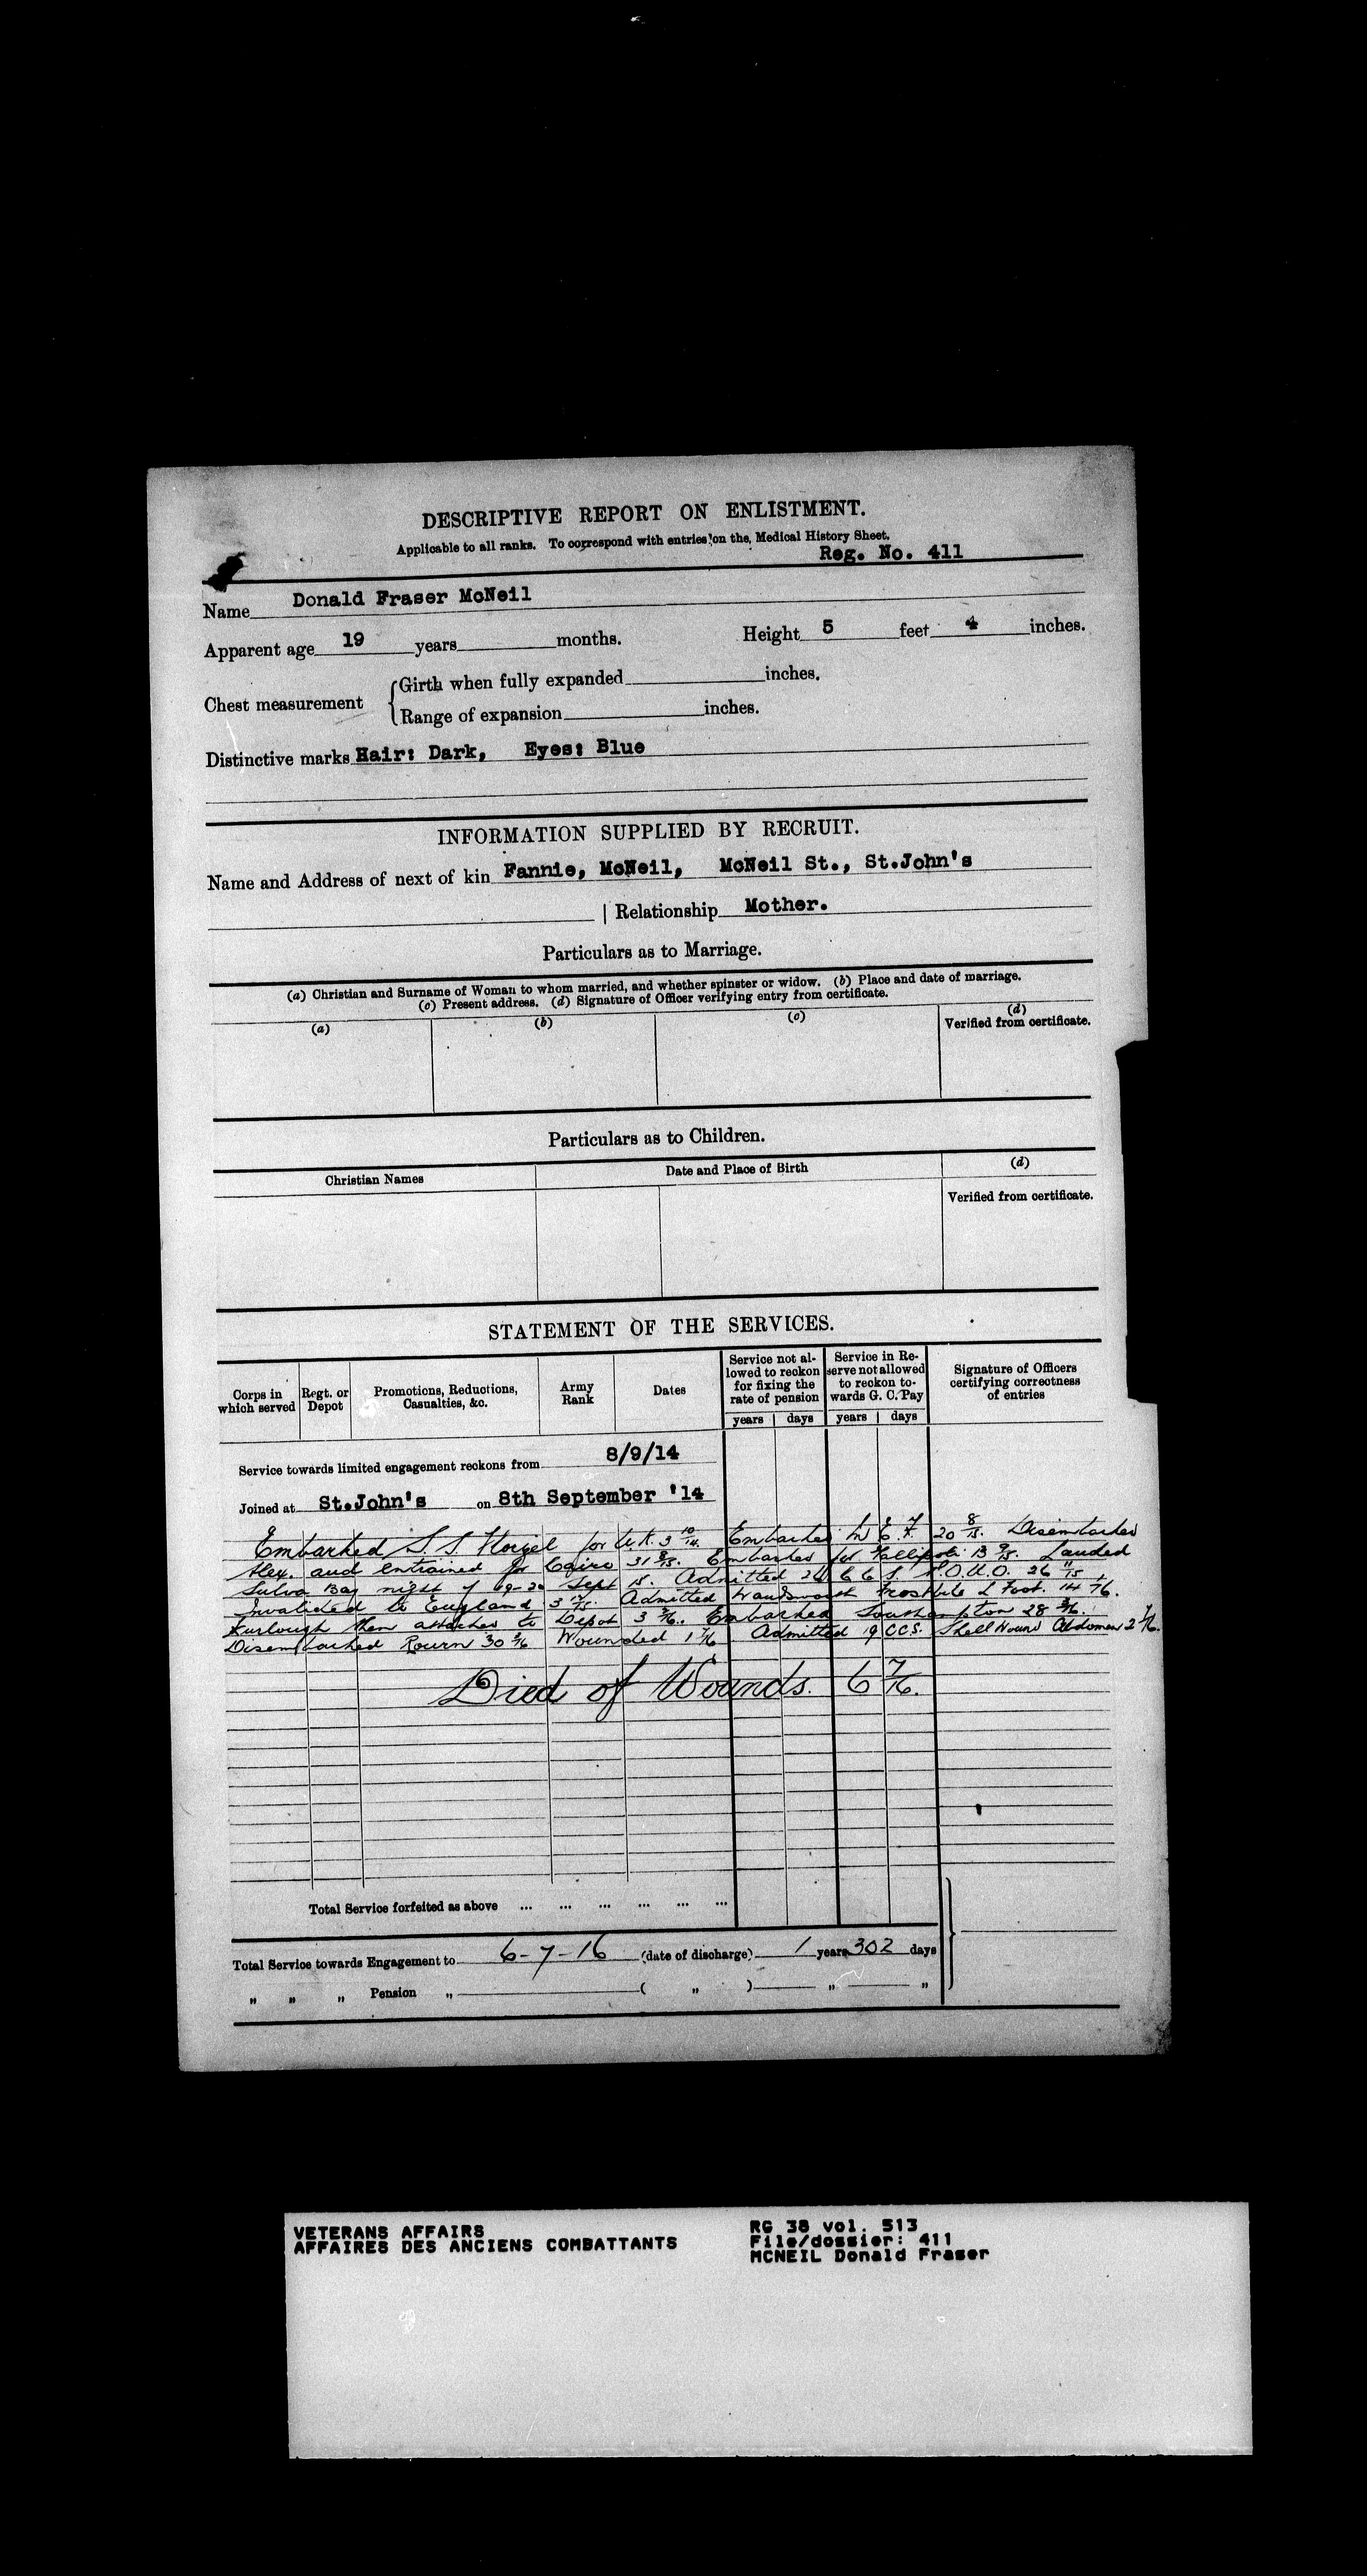 DESCRIPTIVE REPORT ON ENLISTMENT.
Applicable to all ranks. To correspond with entries on the Medical History Sheet.
Reg. No. 411
Name Donald Fraser McNeil
Apparent age 19 years months. Height 5 feet 4 inches.
Chest measurement
Girth when fully expanded inches.
Range of expansion inches.
Distinctive marks Hair: Dark, Eyes: Blue
INFORMATION SUPPLIED BY RECRUIT.
Name and Address of next of kin Fannie, McNeil, McNeil St., St.John's
| Relationship Mother.
Particulars as to Marriage.
(a) Christian and Surname of Woman to whom married, and whether spinster or widow. (b) Place and date of marriage.
(c) Present address. (d) Signature of Officer verifying entry from certificate.
(a) (b) (c) (d)
Verified from certificate.
Particulars as to Children.
Christian Names Date and Place of Birth (d)
Verified from certificate.
STATEMENT OF THE SERVICES.
Corps in which served Regt. or Depot Promotions, Reductions, Casualties, &c. Army Rank Dates Service not allowed to reckon for fixing the rate of pension Service in Reserve not allowed to reckon towards G. C. Pay Signature of Officers certifying correctness of entries
years days years days
Service towards limited engagement reckons from 8/9/14
Joined at St.John's on 8th September '14
Embarked S.S. for U.K. 3 10/14. Embarked 20 8/15. Disembarked
Alex. and entrained for Cairo 31 8/15. Embarked for Gallipoli 13 9/15. Landed
Suvla Bay night of 19-20 Sept 15. Admitted 26 C.C.S. P.U.O. 26 11/15
Invalided to England 3 12/15. Admitted Wandsworth Frostbite L Foot. 14
Furlough then attached to Depot 3 Embarked Southampton 28 3/16.
Disembarked Rouen 30 3/16 Wounded 1 7/16 Admitted 19 CCS. Shell Wound Abdomen 2 7/16.
Died of Wounds. 6 7/16.
Total Service forfeited as above ... ... ... ... ... ...
Total Service towards Engagement to 6-7-16 (date of discharge) 1 years 302 days
" " " Pension " ( " ) " "
VETERANS AFFAIRS
AFFAIRES DES ANCIENS COMBATTANTS
RG 38 vol. 513
File/dossier: 411
MCNEIL Donald Fraser